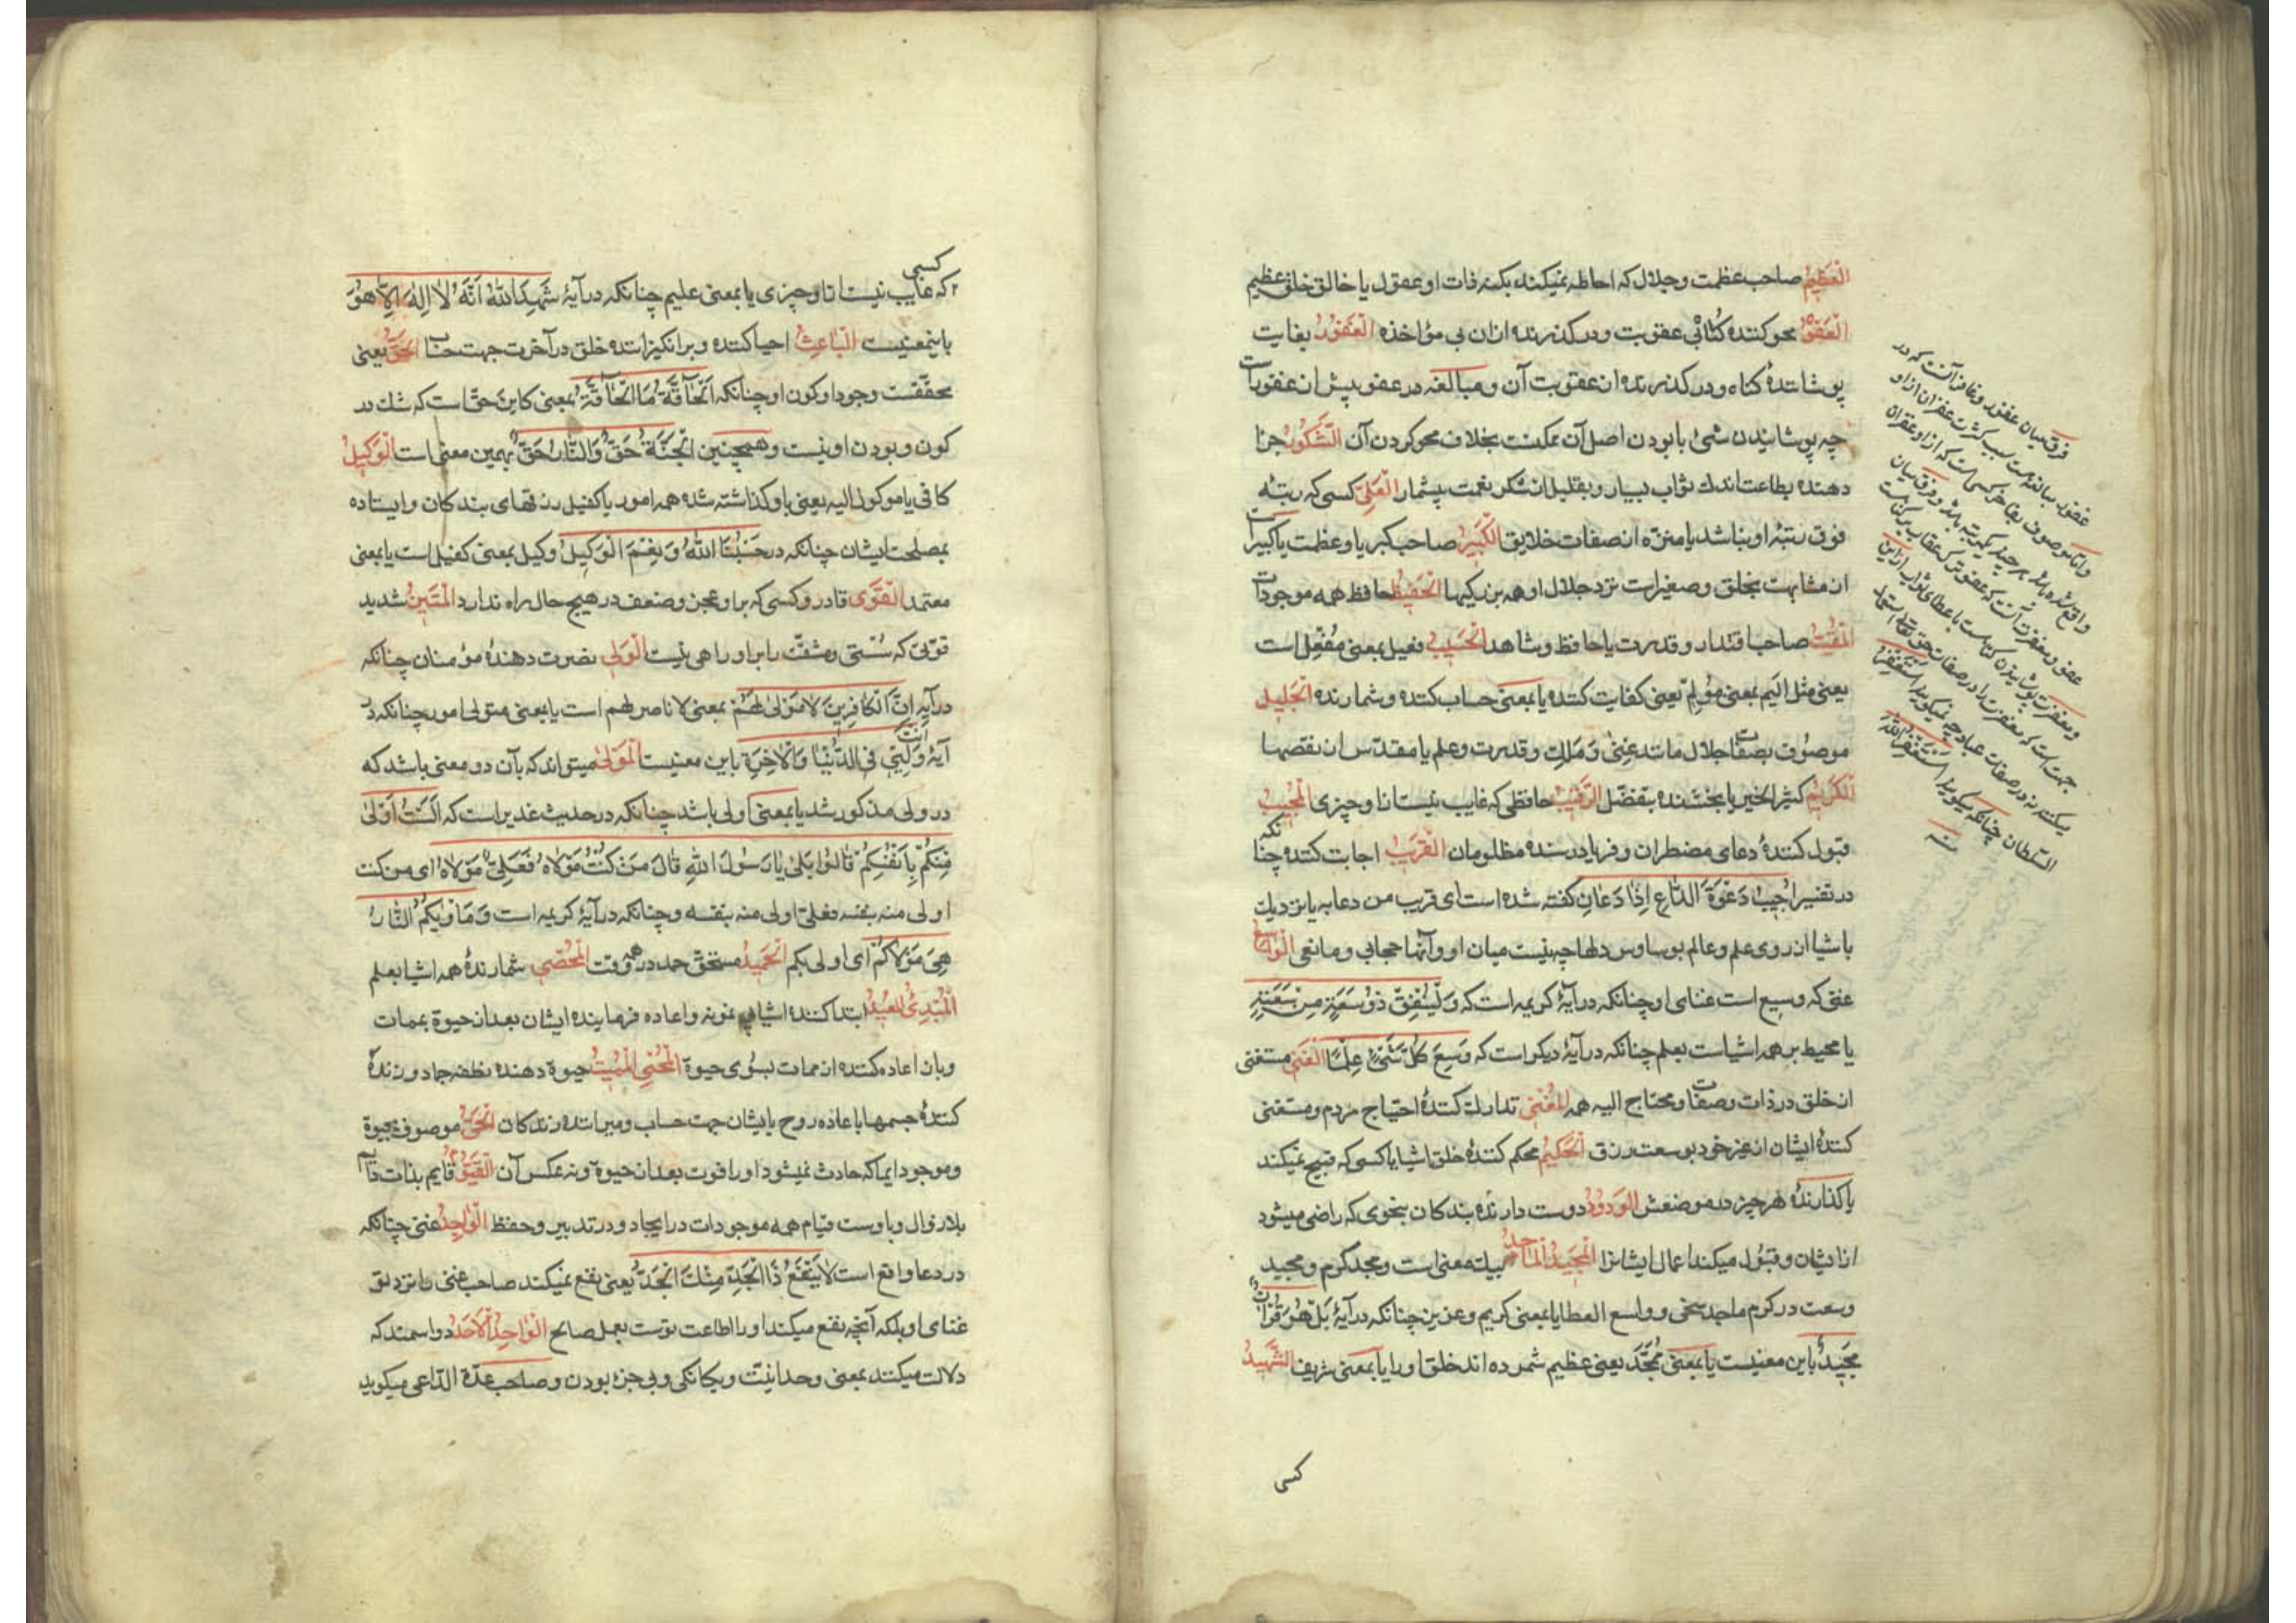 العظیم صاحب عظمت وجلال که احاطه نمیکند بکنه ذات او عقول یا خالق خلق عظیم
العفوّ محو کننده کُنائی عقوبت ودر کذرنده ازان بی مؤاخذه الغفور بغایت
پوشانندهٔ کناه ودر کذرنده از عقوبت آن ومبالغه در عفو بیش از غفورات
چه پوشانیدن شئ بابودن اصل آن ممکنست بخلاف محو کردن آن الشکور جزا
دهنده بطاعت اندك ثواب بسیار وبقلیل از شکر نعمت بیشمار العلیّ کسی که رتبهٔ
فوق رتبهٔ او نباشد یا منزّه از صفات خلایق الکبیر صاحب کبریا وعظمت یا کبیراست
از مشابهت بخلق وصغیراست نزد جلال او همه بزرکیها الحفیظ حافظ همه موجودات
المقیت صاحب اقتدار وقدرت یا حافظ وشاهد الحسیب فعیل بمعنی مُفعِل است
یعنی مثل الیم بمعنی مؤلِم یعنی کفایت کننده یا بمعنی حساب کننده وشمارنده الجلیل
موصُوف بصفات جلال مانند غِنیٰ وَمَلِك وقدرت وعلم یا مقدّس از نقصها
الکریم کثیر الخیر یا بخشنده بتفضّل الرّقیب حافظی که غایب نیست ازا و چیزی المجیب
قبول کنندهٔ دعای مضطران وفریادرسنده مظلومان القریب اجابت کننده چنانکه
در تفسیر اُجِیبُ دَعْوَةَ الدَّاعِ اِذَا دَعَانِ کفته شده است ای قریب من دعابه یا نزدیك
باشیا از روی علم وعالم بوساوس دلها چه نیست میان او وآنها حجابی ومانعی الواسع
غنیّ که وسیع است غنای او چنانکه در آیهٔ کریمه است که وَلْیُنْفِقْ ذُو سَعَةٍ مِنْ سَعَتِهِ
یا محیط بر همه اشیاست بعلم چنانکه در آیهٔ دیکر است که وَسِعَ کُلَّ شَیْءٍ عِلْمًا الغنی مستغنی
از خلق در ذات وصفات ومحتاج الیه همه المُغنی تدارك کنندهٔ احتیاج مردم ومستغنی
کنندهٔ ایشان از غیر خود بوسعت رزق الحکیم محکم کنندهٔ خلق اشیا یا کسی که قبیح نمیکند
یا کذارندهٔ هر چیز در موضعش الودود دوست دارندهٔ بندکان بنحوی که راضی میشود
از ایشان وقبُول میکند اعمال ایشانرا المجید الماجد بیك معنی است ومجد کرم ومجید
وسعت در کرم ماجد سخی وواسع العطا یا بمعنی کریم وعزیز چنانکه در آیهٔ بَلْ هُوَ قُرْآنٌ
مَجِیدٌ باین معنیست یا بمعنی مُمَجَّد یعنی عظیم شمرده اند خلق اورا یا بمعنی شریف الشهید
کسی
فرق میان غفور وغافر آنست که در
غفور مبالغه هست بسبب کثرت غفران از او
السّلطان چنانکه میکویند استغفر الله
منه
کسی
که غایب نیست ازا و چیزی یا بمعنی علیم چنانکه در آیهٔ شَهِدَ اللهُ اَنَّهُ لَا اِلٰهَ اِلَّا هُوَ
باینمعنیست الباعث احیا کننده وبرانکیزاننده خلق در آخرت جهت حساب الحقّ یعنی
محقّقست وجود او کون او چنانکه اَلْحَاقَّةُ مَا الْحَاقَّةُ بمعنی کاین حقّ است که شك در
کون وبودن او نیست وهمچنین اَلْجَنَّةُ حَقٌّ وَالنَّارُ حَقٌّ بهمین معنی است الوکیل
کافی یا موکول الیه یعنی باو کذاشته شده همه امور یا کفیل رزقهای بندکان وایستاده
بمصلحت ایشان چنانکه در حَسْبُنَا اللهُ وَنِعْمَ الْوَکِیلُ وکیل بمعنی کفیل است یا بمعنی
معتمد القوی قادر وکسی که بر او عجز وضعف در هیچ حال راه ندارد المتین شدید
قوّتی که سُستی ومشقّت را بر او راهی نیست الولی نصرت دهندهٔ مؤمنان چنانکه
در آیه اِنَّ الْکَافِرِینَ لَا مَوْلَیٰ لَهُمْ بمعنی لا ناصر لهم است یا بمعنی متولی امور چنانکه در
آیهٔ اَنْتَ وَلِیِّی فِی الدُّنْیَا وَالْآخِرَةِ باین معنیست المولیٰ میتواند که بآن دو معنی باشد که
در ولی مذکور شد یا بمعنی اولی باشد چنانکه در حدیث غدیر است که اَلَسْتُ اَوْلَیٰ
مِنْکُمْ بِاَنْفُسِکُمْ قَالُوا بَلَیٰ یَا رَسُولَ اللهِ قَالَ مَنْ کُنْتُ مَوْلَاهُ فَعَلِیٌّ مَوْلَاهُ ای من کنت
اولی منه بنفسه فعلیّ اولی منه بنفسه وچنانکه در آیهٔ کریمه است وَمَأْوٰیکُمُ النَّارُ
هِیَ مَوْلَاکُمْ ای اولی بکم الحمید مستحقّ حمد در همه وقت المحصی شمارندهٔ همه اشیا بعلم
المبدئ المعید ابتدا کنندهٔ اشیا بی نمونه واعاده فرمایندهٔ ایشان بعد از حیوة بممات
وباز اعاده کننده از ممات بسُوی حیوة المحیی الممیت حیوة دهنده نطفه جماد وزنده
کنندهٔ جسمها باعاده روح بایشان جهت حساب ومیراننده زندکان الحیّ موصوف بحیوة
وموجود ایما که حادث نمیشود اورا فوت بعد از حیوة ونه عکس آن القیّوم قایم بذات
بلا زوال وباوست قیام همه موجودات در ایجاد ودر تدبیر وحفظ الواجد غنی چنانکه
در دعا واقع است لَا یَنْفَعُ ذَا الْجَدِّ مِنْكَ الْجَدُّ یعنی نفع نمیکند صاحب غنی را نزد تو
غنای او بلکه آنچه نفع میکند اورا اطاعت توست بعمل صالح الواحد الاحد دو اسمند که
دلالت میکنند بمعنی وحدانیّت ویکانکی وبی جزء بودن وصاحب عدّة الدّاعی میکوید